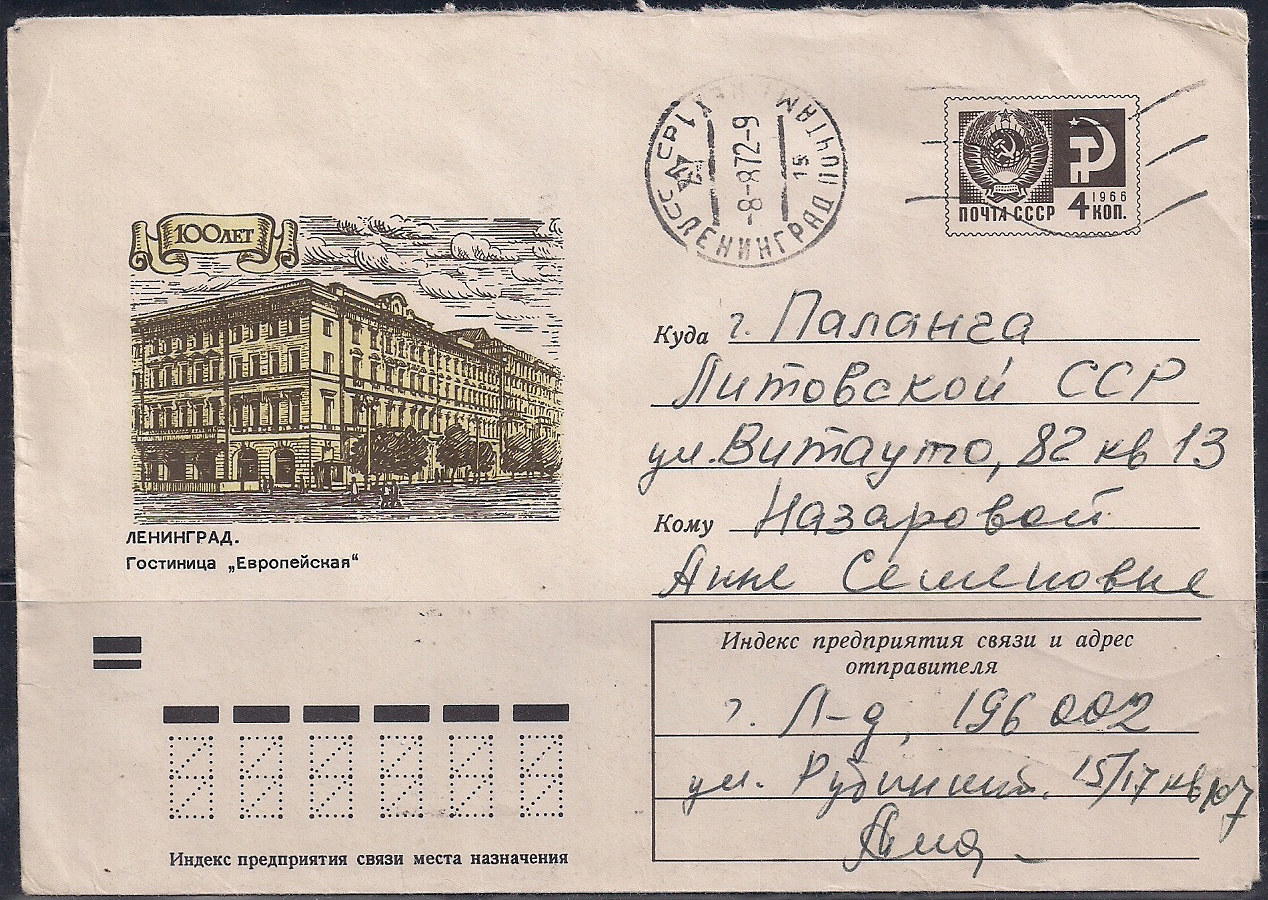 100 ЛЕТ
ЛЕНИНГРАД.
Гостиница „Европейская“
ЛЕНИНГРАД ПОЧТАМТ
-8-872-9
15
ПОЧТА СССР
1966
4 КОП.
Куда г. Паланга
Литовской ССР
ул. Витауто, 82 кв 13
Кому Назаровой
Анне Семеновне
Индекс предприятия связи и адрес
отправителя
г. Л-д, 196 002
ул. 15/17 кв 107
Индекс предприятия связи места назначения